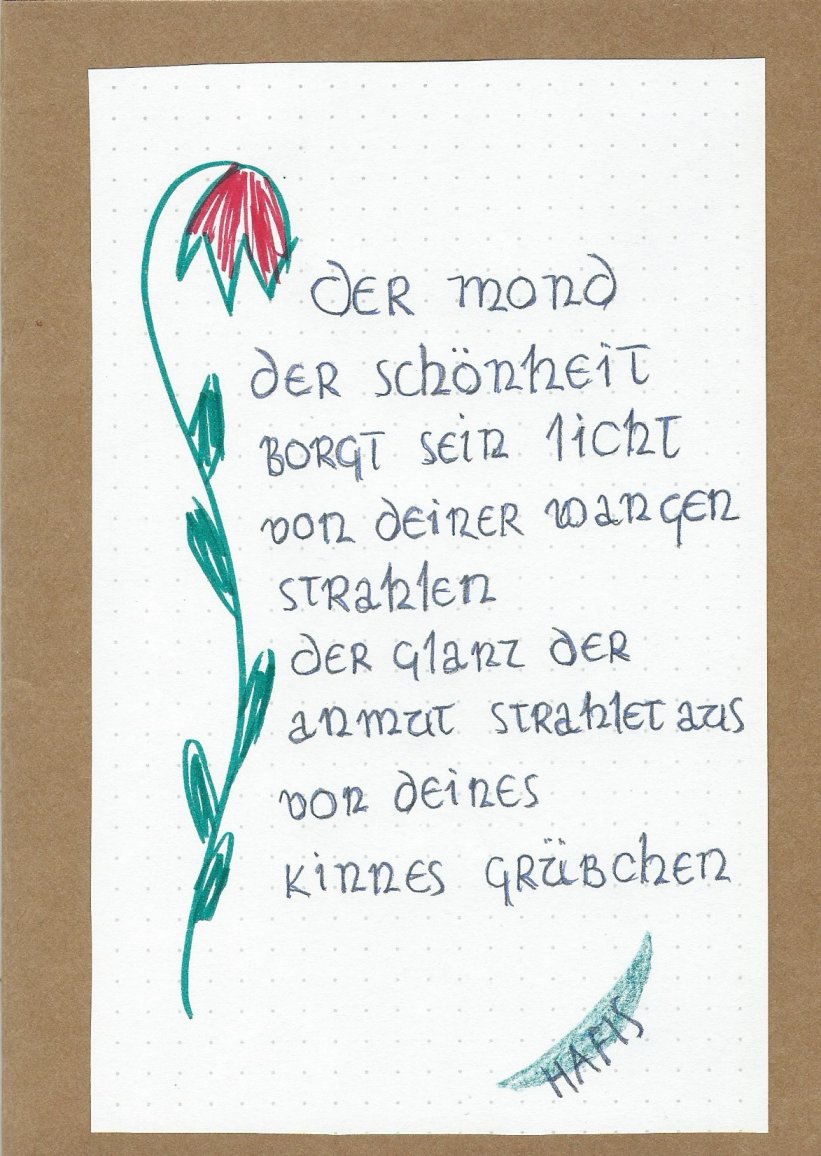 DER MOND
DER SCHÖNHEIT
BORGT SEIN LICHT
VON DEINER WANGEN
STRAHLEN
DER GLANZ DER
ANMUT STRAHLET AUS
VON DEINES
KINNES GRÜBCHEN
HAFIS